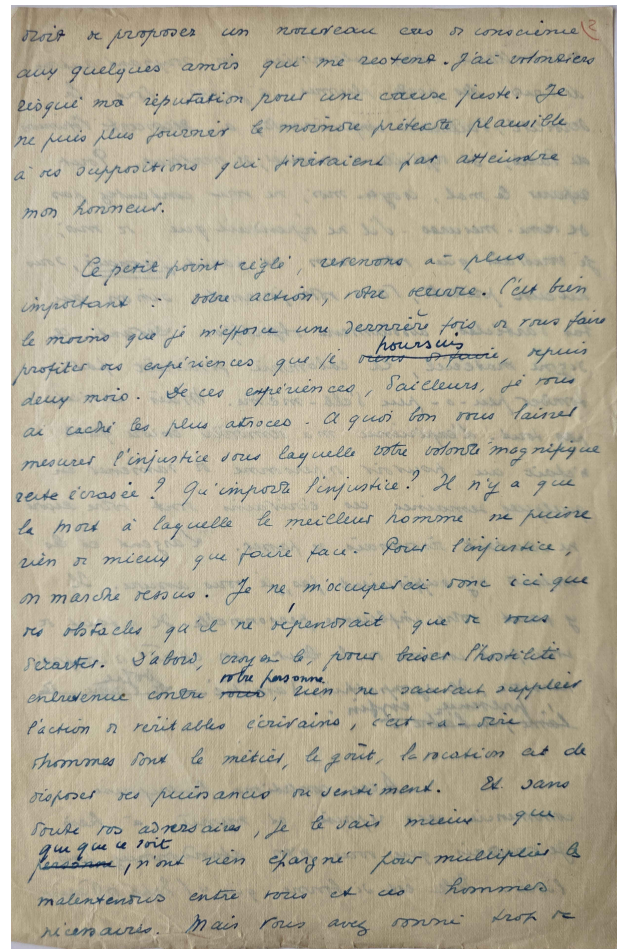 droit de proposer un nouveau cas de conscience 2
aux quelques amis qui me restent. J'ai volontiers
risqué ma réputation pour une cause juste. Je
ne puis plus fournir le moindre prétexte plausible
à des suppositions qui finiraient par atteindre
mon honneur.
Ce petit point réglé, revenons au plus
important : votre action, votre œuvre. C'est bien
le moins que je m'efforce une dernière fois de vous faire
poursuis
profiter des expériences que je viens de faire, depuis
deux mois. De ces expériences, d'ailleurs, je vous
ai caché les plus atroces. A quoi bon vous laisser
mesurer l'injustice sous laquelle votre volonté magnifique
reste écrasée ? Qu'importe l'injustice ? Il n'y a que
la mort à laquelle le meilleur homme ne puisse
rien de mieux que faire face. Pour l'injustice,
on marche dessus. Je ne m'occuperai donc ici que
des obstacles qu'il ne dépendrait que de vous
d'écarter. D'abord, croyez-le, pour briser l'hostilité
votre personne
entretenue contre vous, rien ne saurait suppléer
l'action de véritables écrivains, c'est-à-dire
d'hommes dont le métier, le goût, la vocation est de
disposer des puissances du sentiment. Et sans
doute vos adversaires, je le sais mieux que
qui que ce soit
personne, n'ont rien épargné pour multiplier les
malentendus entre vous et ces hommes
nécessaires. Mais vous avez donné trop de